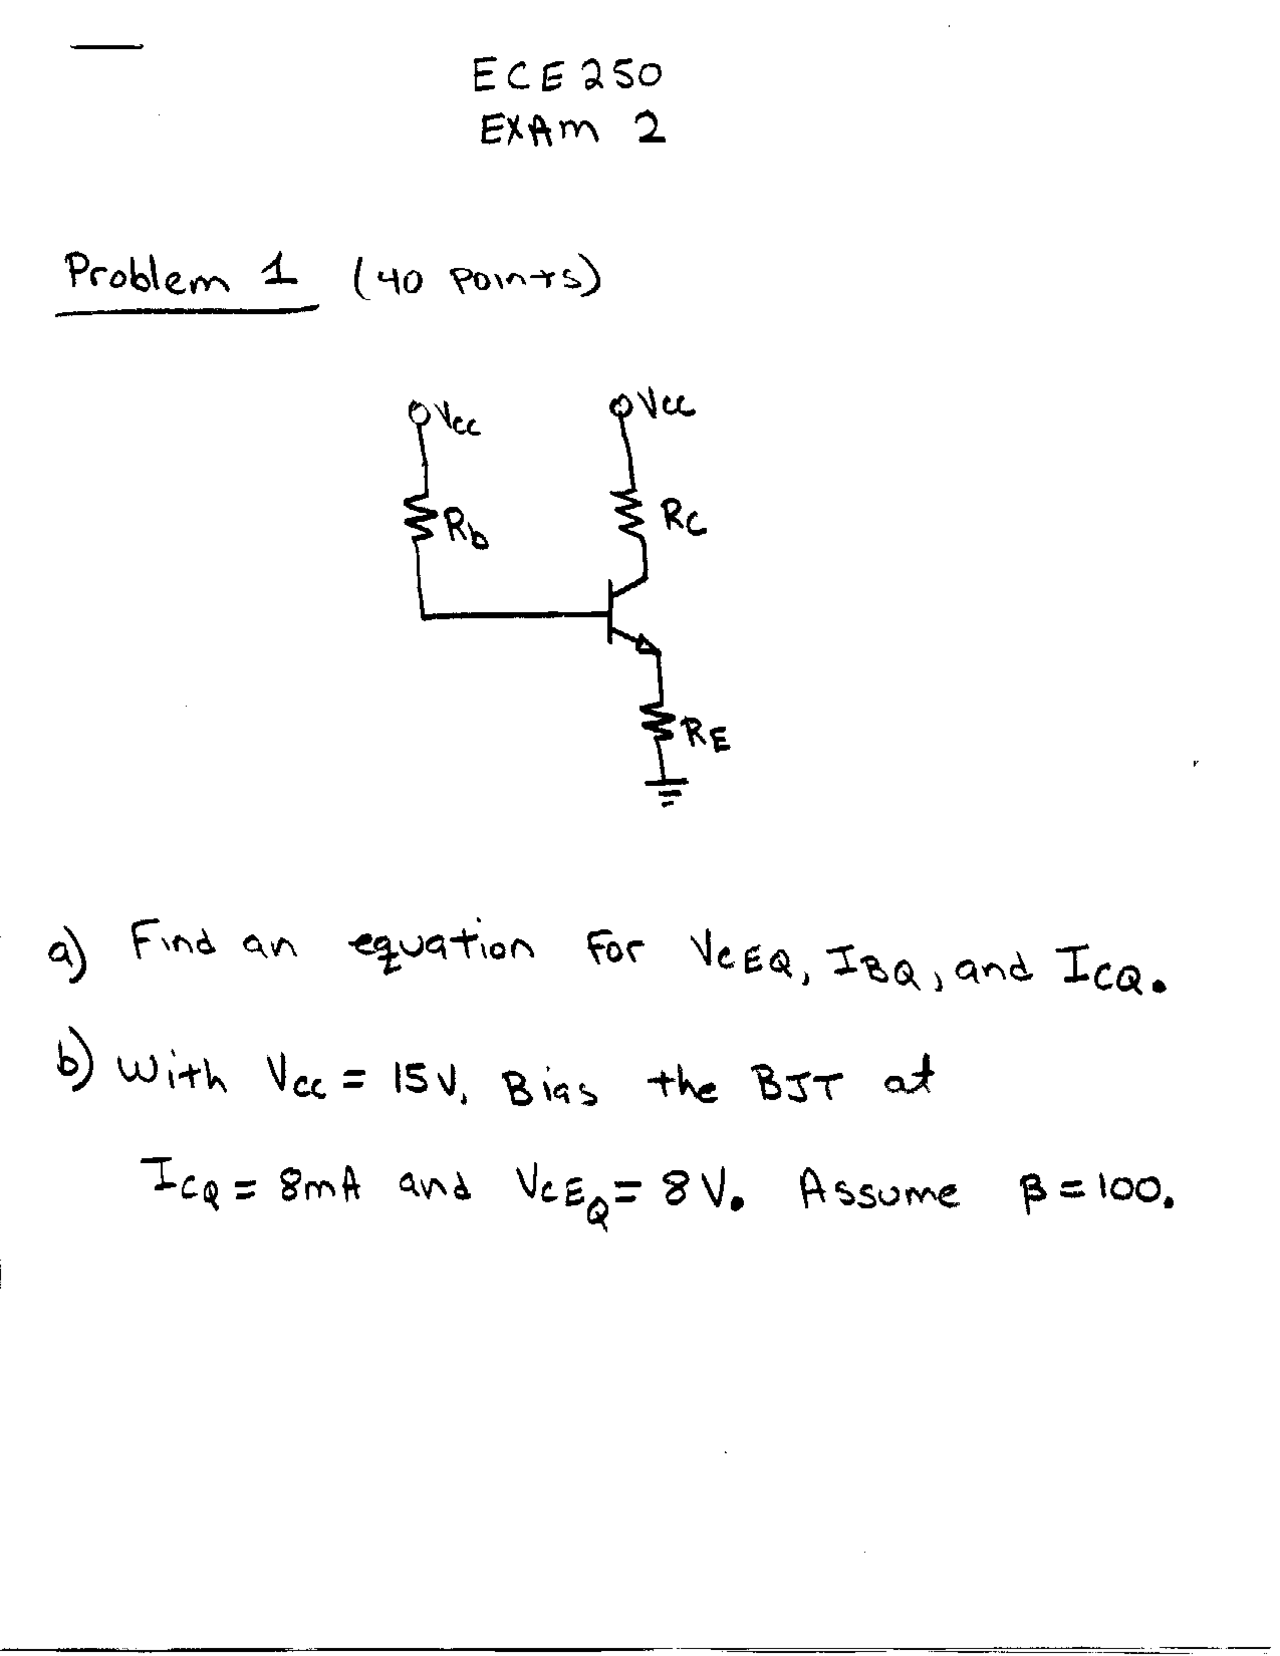 ECE 250
EXAM 2
Problem 1 (40 Points)
Vcc
Vcc
Rb
RC
RE
a) Find an equation for VCEQ, IBQ, and ICQ.
b) With Vcc = 15V, Bias the BJT at
ICQ = 8mA and VCEQ = 8V. Assume β = 100.